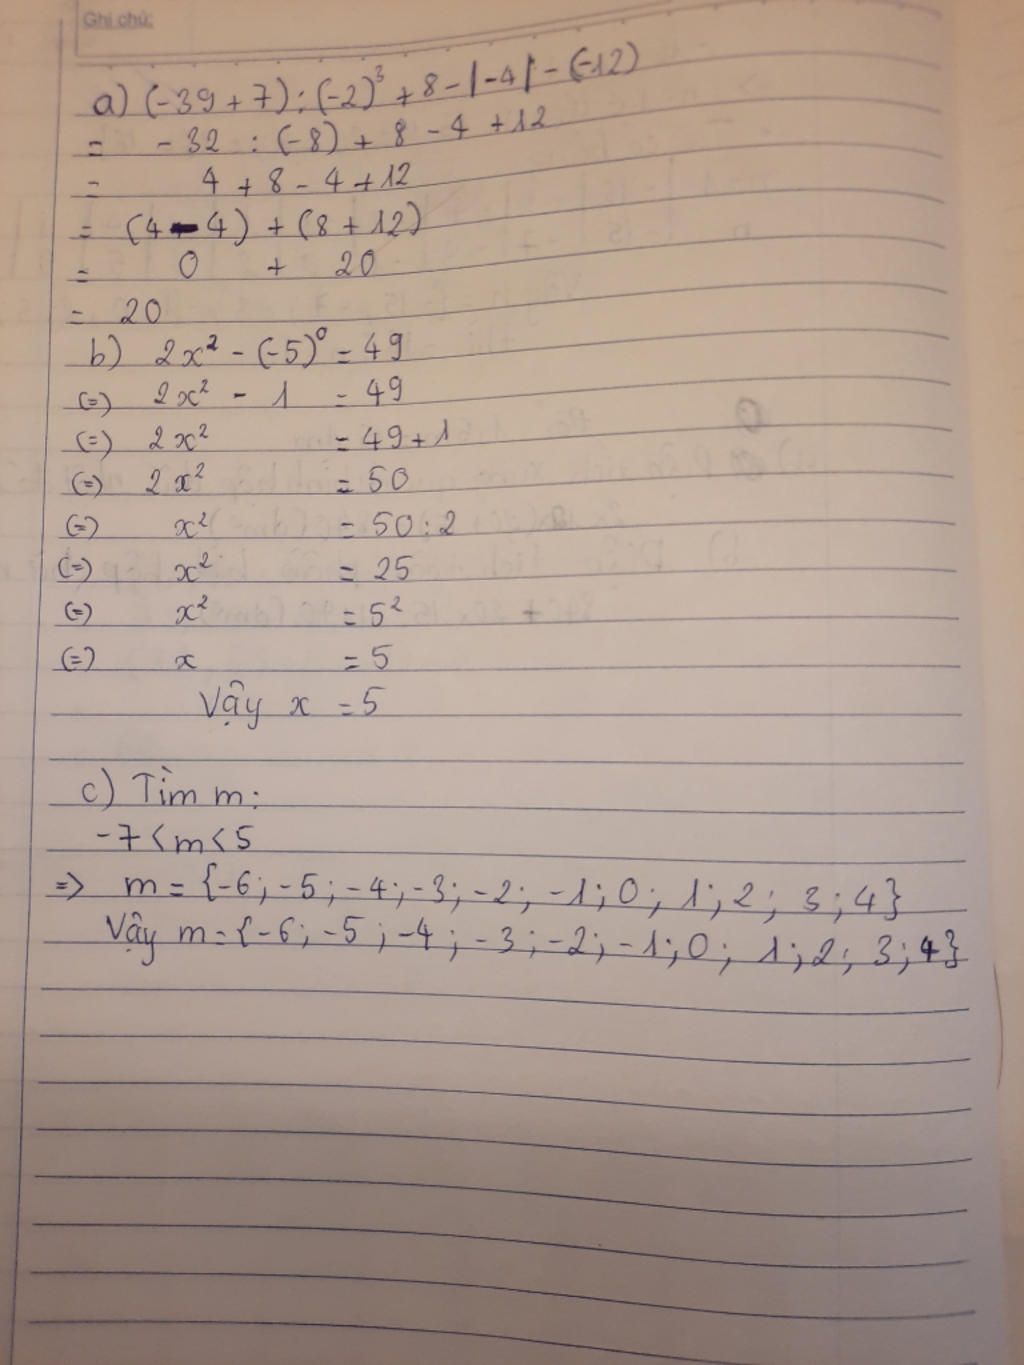 Ghi chú:
a) (-39 + 7) : (-2)³ + 8 - |-4| - (-12)
= -32 : (-8) + 8 - 4 + 12
= 4 + 8 - 4 + 12
= (4 - 4) + (8 + 12)
= 0 + 20
= 20
b) 2x² - (-5)⁰ = 49
(=) 2x² - 1 = 49
(=) 2x² = 49 + 1
(=) 2x² = 50
(=) x² = 50 : 2
(=) x² = 25
(=) x² = 5²
(=) x = 5
Vậy x = 5
c) Tìm m:
-7 < m < 5
=> m = {-6; -5; -4; -3; -2; -1; 0; 1; 2; 3; 4}
Vậy m = {-6; -5; -4; -3; -2; -1; 0; 1; 2; 3; 4}